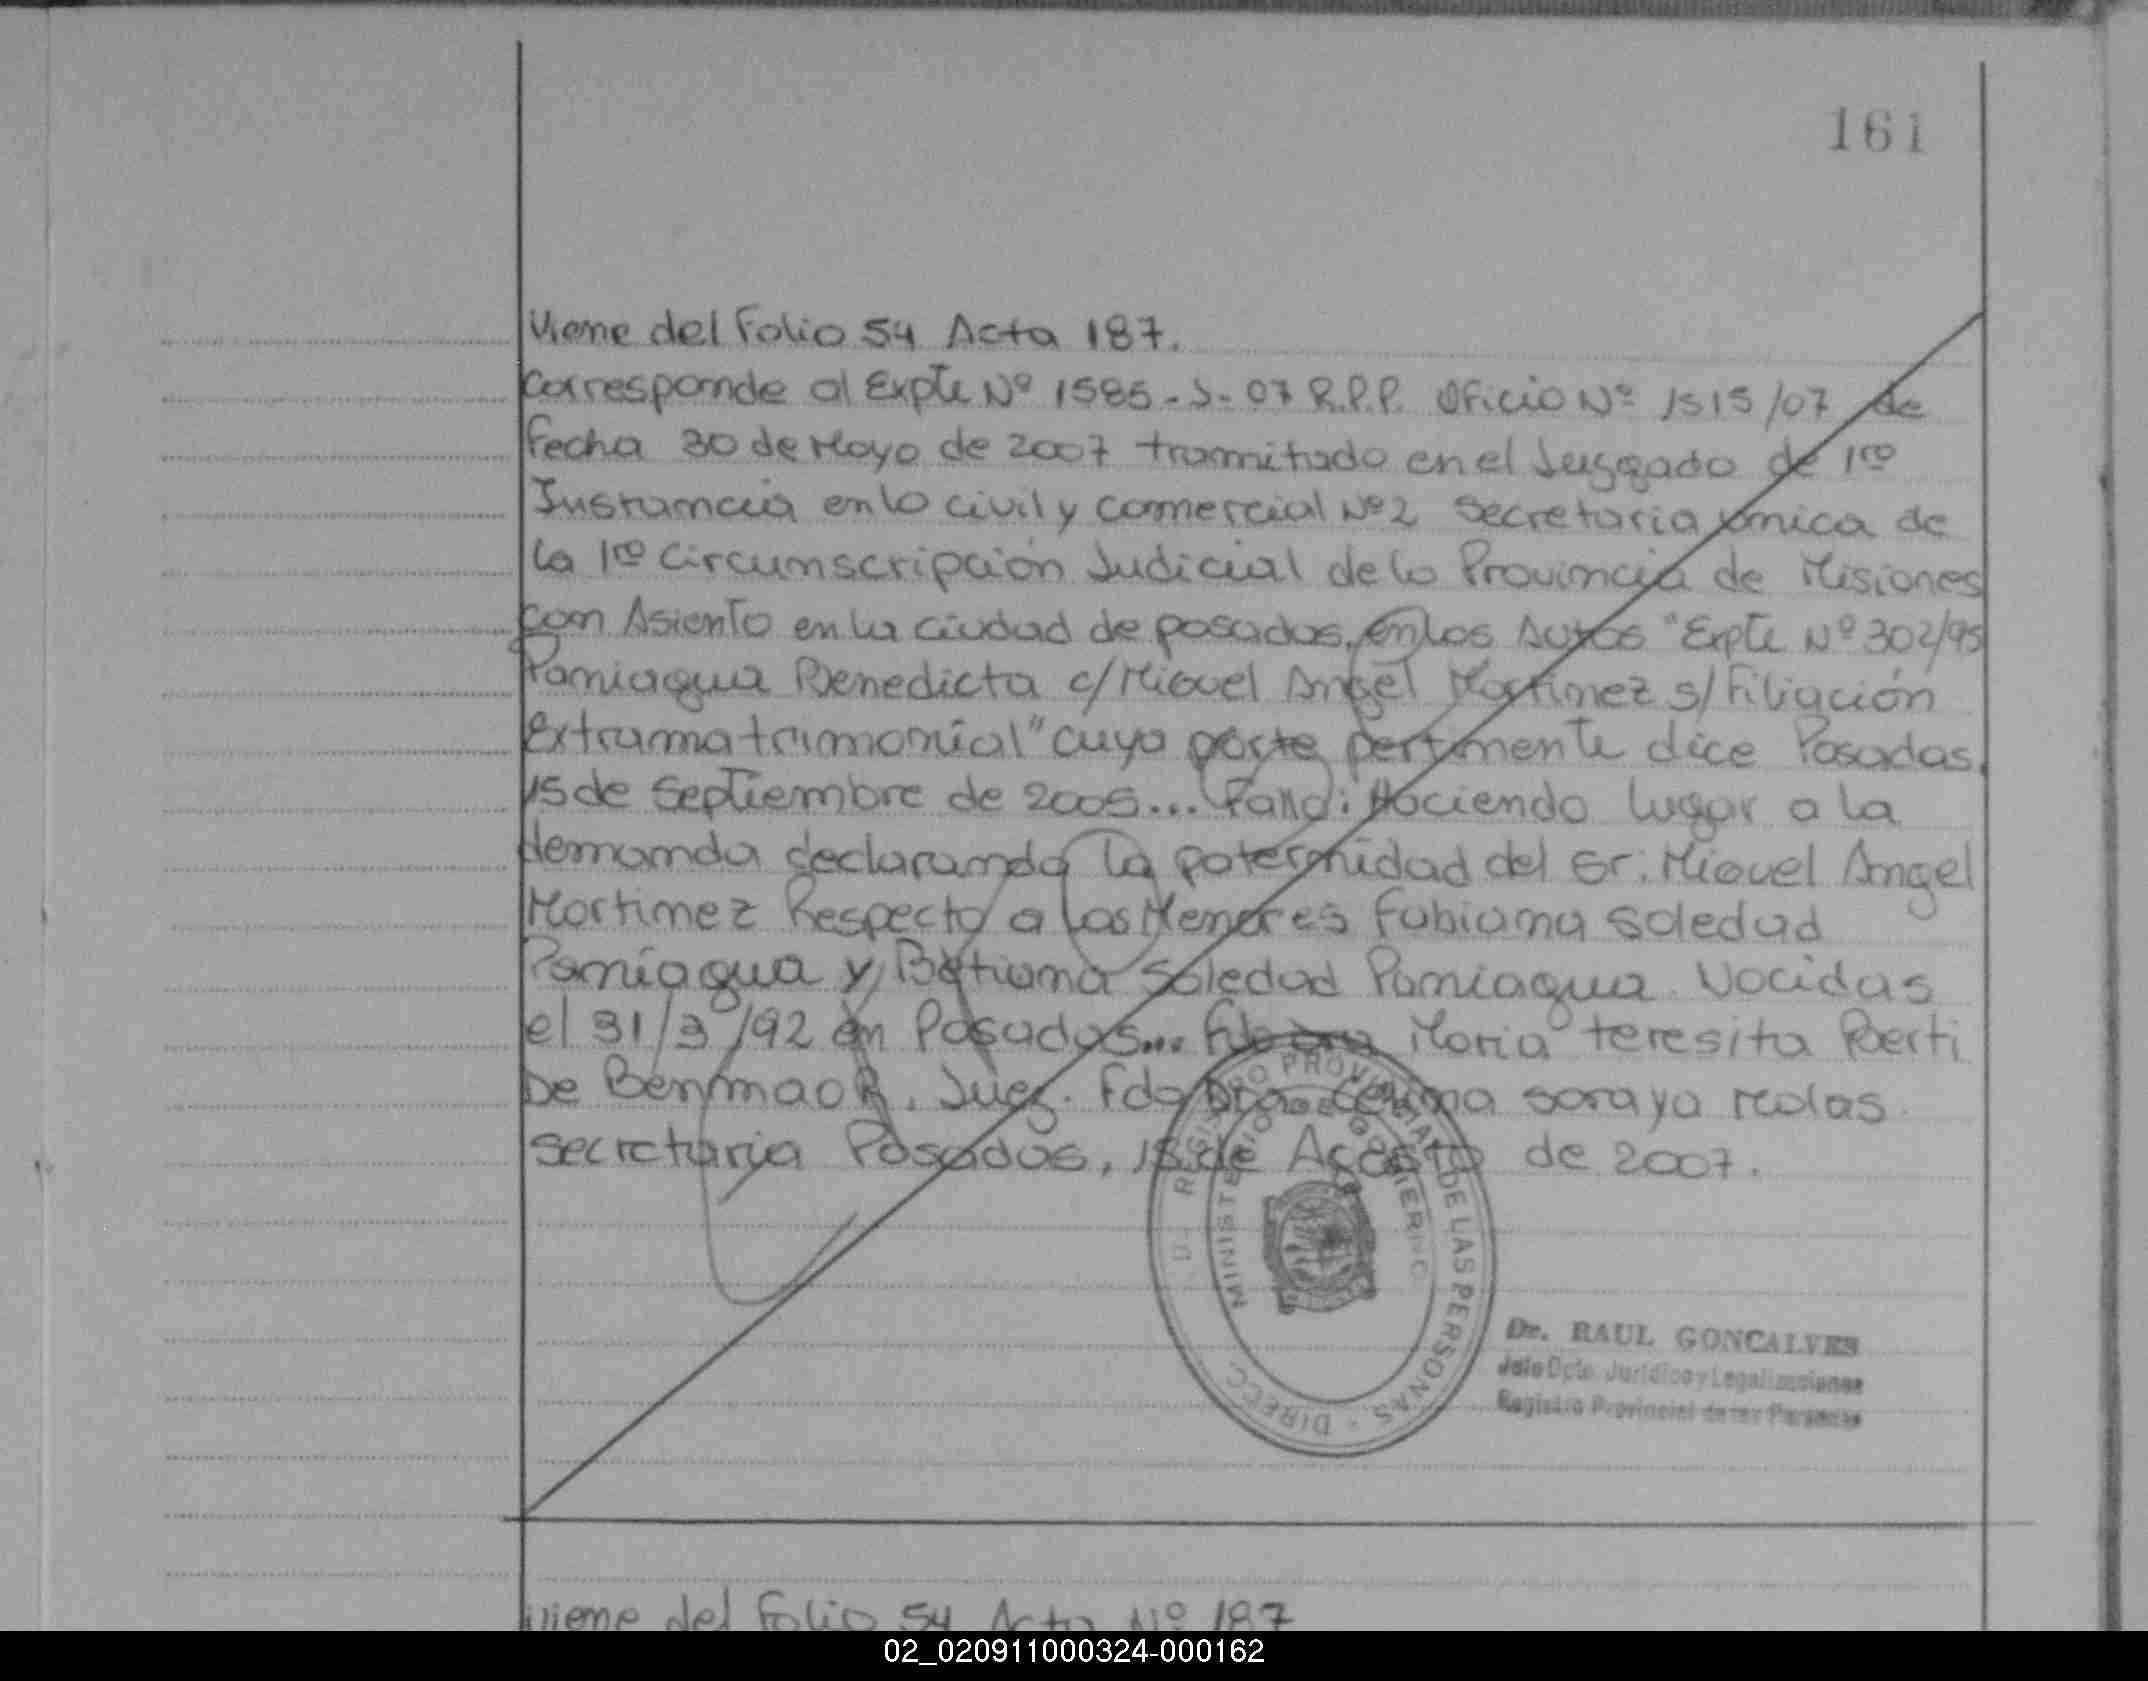 161
Viene del Folio 54 Acta 187.
Corresponde al Expte Nº 1585-S-07 R.P.P. Oficio Nº 1515/07 de
Fecha 30 de Mayo de 2007 tramitado en el Juzgado de 1ra
Instancia en lo civil y comercial Nº2 secretaria unica de
la 1ra Circunscripción Judicial de la Provincia de Misiones
con Asiento en la ciudad de posadas, en los Autos "Expte Nº 302/95
Paniagua Benedicta c/Miguel Angel Martinez s/Filiación
Extramatrimonial" cuya parte pertinente dice Posadas,
15 de Septiembre de 2005... Fallo: Haciendo lugar a la
demanda declarando la paternidad del Sr. Miguel Angel
Martinez Respecto a las Menores Fabiana Soledad
Paniagua y Batiana Soledad Paniagua. Nacidas
el 31/3/92 en Posadas... Maria teresita Berti
De Benmaor, Juez. Fdo Dra. soraya
secretaria Posadas, 15 de Agosto de 2007.
REGISTRO PROVINCIAL DE LAS PERSONAS - DIRECC
MINISTERIO DE GOBIERNO
Dr. RAUL GONCALVES
Jefe Dpto. Jurídico y Legalizaciones
Registro Provincial de las Personas
Viene del Folio 54 Acta Nº 187
02_020911000324-000162